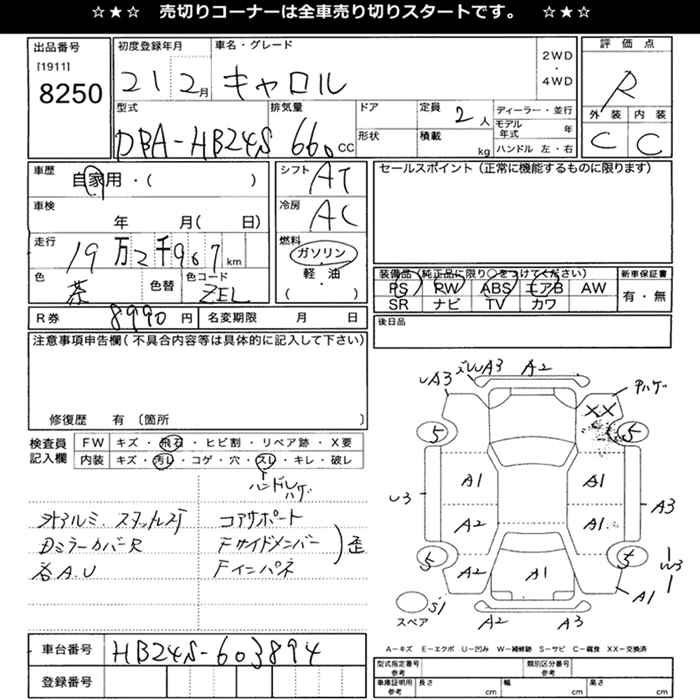 ☆★☆ 売切りコーナーは全車売り切りスタートです。 ☆★☆
出品番号
[1911]
8250
初度登録年月
21 2月
車名・グレード
キャロル
2WD
・
4WD
評価点
R
外装 内装
C C
型式
DBA-HB24S
排気量
660cc
ドア
形状
定員 2人
積載 kg
ディーラー・並行
モデル年式 年
ハンドル 左・右
車歴
自家用・( )
車検
年 月( 日)
走行
19万2千967km
色
茶
色替
色コード
ZEL
シフト
AT
冷房
AC
燃料
ガソリン
軽・油
( ・ )
セールスポイント(正常に機能するものに限ります)
装備品(純正品に限り○をつけてください)
PS PW ABS エアB AW
SR ナビ TV カワ
新車保証書
有・無
R券 8990円
名変期限 月 日
後日品
注意事項申告欄(不具合内容等は具体的に記入して下さい)
修復歴 有 〔箇所 〕
検査員記入欄
FW キズ・飛石・ヒビ割・リペア跡・X要
内装 キズ・汚レ・コゲ・穴・スレ・キレ・破レ
ハンドルハゲ
社外アルミ、スタッドレス
Dミラーカバー R
各A.U
コアサポート
Fサイドメンバー
Fインパネ
歪
UA3 ズレUA3 A2
Pハゲ
XX
5 5
A1 A1
U3 A3
A2 A1
5 5
A2 A1 W3
A1
S1
スペア
A2 A3
A-キズ E-エクボ U-凹み W-補修跡 S-サビ C-腐食 XX-交換済
車台番号 HB24S-603894
登録番号
型式指定番号 参考
類別区分番号 参考
車庫証明用 参考
長さ cm
幅 cm
高さ cm